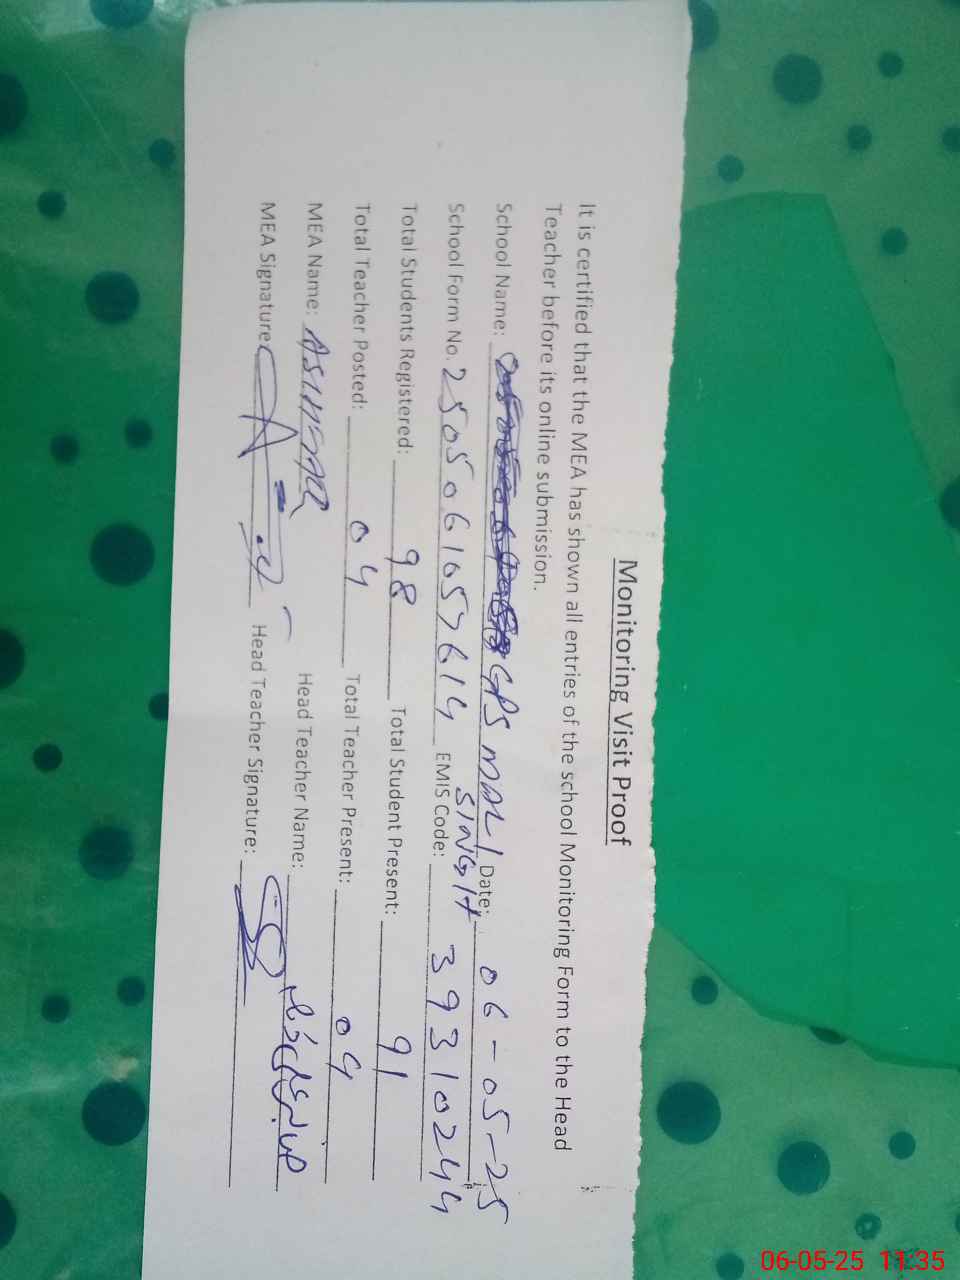 Monitoring Visit Proof
It is certified that the MEA has shown all entries of the school Monitoring Form to the Head
Teacher before its online submission.
School Name: GPS MAL SINGH Date: 06-05-25
School Form No. 2505061057614 EMIS Code: 39310244
Total Students Registered: 98 Total Student Present: 91
Total Teacher Posted: 04 Total Teacher Present: 04
MEA Name: Head Teacher Name:
MEA Signature: Head Teacher Signature:
06-05-25 11:35